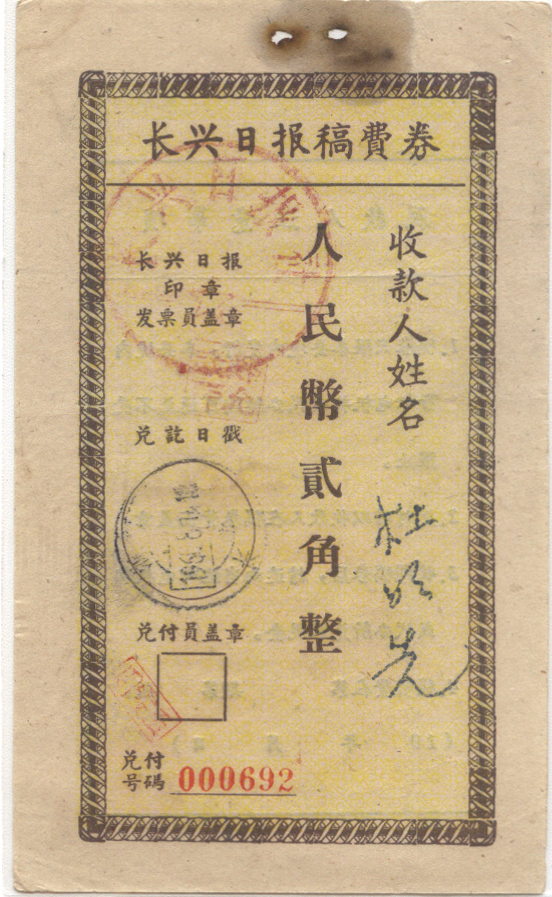 长兴日报稿費券
收款人姓名
人民幣貳角整
长兴日报
印章
发票員盖章
兑訖日戳
兑付員盖章
兑付
号碼 000692